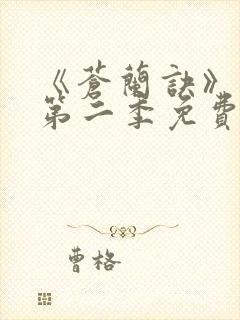 《蒼蘭訣》
第二季免費
曹格